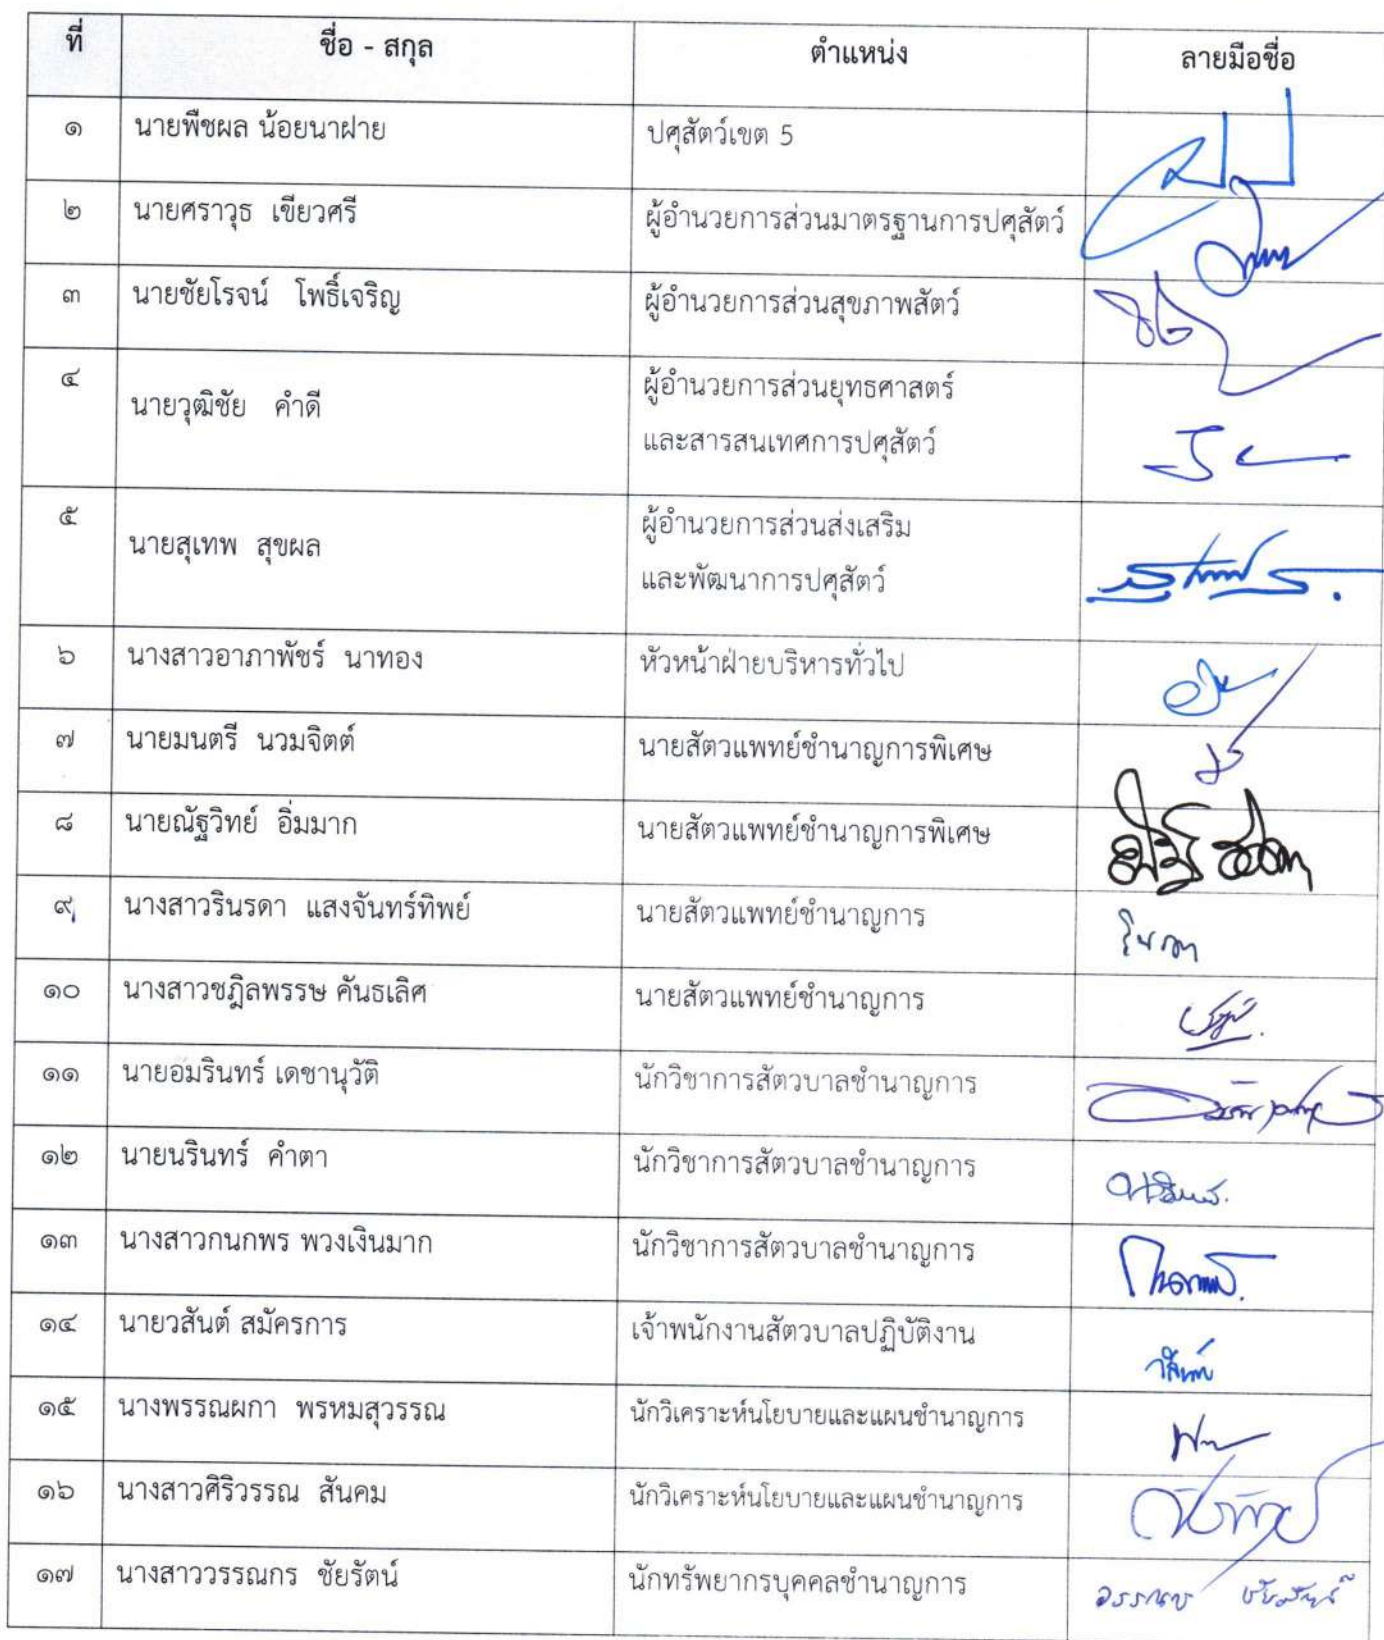 ที่ ชื่อ - สกุล ตำแหน่ง ลายมือชื่อ
๑ นายพืชผล น้อยนาฝาย ปศุสัตว์เขต 5
๒ นายศราวุธ เขียวศรี ผู้อำนวยการส่วนมาตรฐานการปศุสัตว์
๓ นายชัยโรจน์ โพธิ์เจริญ ผู้อำนวยการส่วนสุขภาพสัตว์
๔ นายวุฒิชัย คำดี ผู้อำนวยการส่วนยุทธศาสตร์
และสารสนเทศการปศุสัตว์
๕ นายสุเทพ สุขผล ผู้อำนวยการส่วนส่งเสริม
และพัฒนาการปศุสัตว์
๖ นางสาวอาภาพัชร์ นาทอง หัวหน้าฝ่ายบริหารทั่วไป
๗ นายมนตรี นวมจิตต์ นายสัตวแพทย์ชำนาญการพิเศษ
๘ นายณัฐวิทย์ อิ่มมาก นายสัตวแพทย์ชำนาญการพิเศษ
๙ นางสาวรินรดา แสงจันทร์ทิพย์ นายสัตวแพทย์ชำนาญการ รินรดา
๑๐ นางสาวชฎิลพรรษ คันธเลิศ นายสัตวแพทย์ชำนาญการ
๑๑ นายอมรินทร์ เดชานุวัติ นักวิชาการสัตวบาลชำนาญการ
๑๒ นายนรินทร์ คำตา นักวิชาการสัตวบาลชำนาญการ
๑๓ นางสาวกนกพร พวงเงินมาก นักวิชาการสัตวบาลชำนาญการ
๑๔ นายวสันต์ สมัครการ เจ้าพนักงานสัตวบาลปฏิบัติงาน วสันต์
๑๕ นางพรรณผกา พรหมสุวรรณ นักวิเคราะห์นโยบายและแผนชำนาญการ
๑๖ นางสาวศิริวรรณ สันคม นักวิเคราะห์นโยบายและแผนชำนาญการ
๑๗ นางสาววรรณกร ชัยรัตน์ นักทรัพยากรบุคคลชำนาญการ วรรณกร ชัยรัตน์